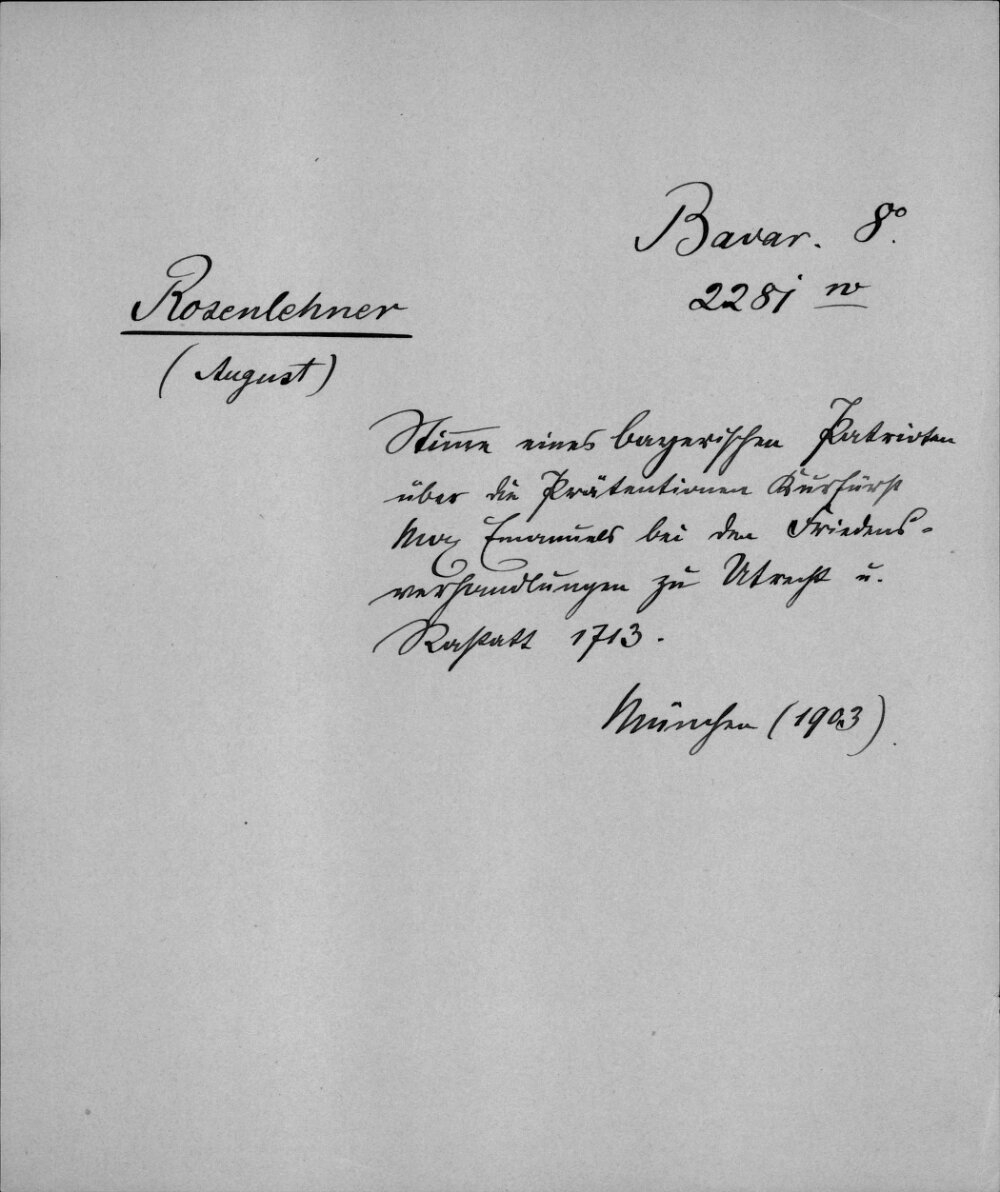 Bavar. 8°.
2281 w
Rosenlehner
(August)
Stim̅e eines bayerischen Patrioten
über die Prätentionen Kurfürst
Max Emanuels bei den Friedens-
verhandlungen zu Utrecht u.
Rastatt 1713.
München (1903)